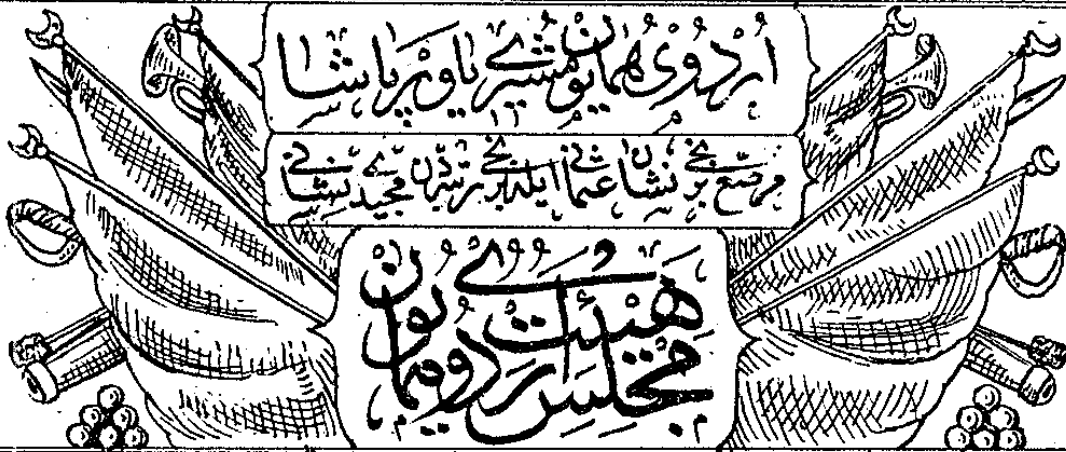 اردوی همایون مشیری یاور پاشا
مرصع برنجی نشان عثمانی ایله برنجی رتبه‌دن مجیدی نشانی
هیئت مجلس اردوی همایون